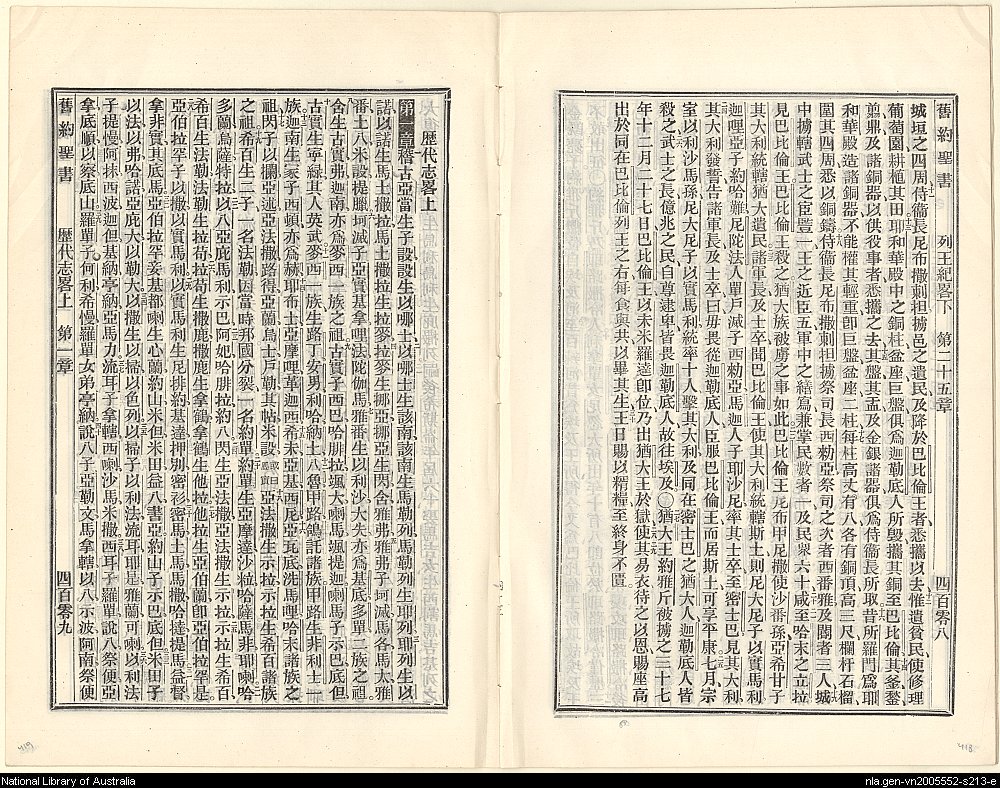 舊約聖書 列王紀畧下 第二十五章 四百零八
城垣之四周侍衞長尼布撒剌坦擄邑之遺民及降於巴比倫王者悉攜以去惟遺貧民使修理
葡萄園耕植其田耶和華殿中之銅柱盆座巨盤俱爲迦勒底人所毀攜其銅至巴比倫其釜鍪
翦鼎及諸銅器以供役事者悉攜之去其盤其盂及金銀諸器俱爲侍衞長所取昔所羅門爲耶
和華殿造諸銅器不能權其輕重卽巨盤盆座二柱每柱高丈有八各有銅頂高三尺欄杆石榴
圍其四周悉以銅鑄侍衞長尼布撒剌坦擄祭司長西勑亞祭司之次者西番雅及閽者三人城
中擄轄武士之宦豎一王之近臣五軍中之繕寫兼掌民數者一及民衆六十咸至哈末之立拉
見巴比倫王巴比倫王殺之遂猶大族被虜之事如此巴比倫王尼布甲尼撒使沙番孫亞希甘子
其大利統轄猶大遺民諸軍長及士卒聞巴比倫王使其大利統轄斯土則尼大尼子以實馬利
迦哩亞子約哈難尼陀法人單戶滅子西勑亞馬迦人子耶沙尼率其士卒至密士巴見其大利
其大利發誓告諸軍長及士卒曰毋畏從迦勒底人臣服巴比倫王而居斯土可享平康七月宗
室以利沙馬孫尼大尼子以實馬利統率十人擊其大利及同在密士巴之猶大人迦勒底人皆
殺之武士之長億兆之民自尊逮卑皆畏迦勒底人故往埃及○猶大王約雅斤被擄之三十七
年十二月二十七日巴比倫王以未米羅達卽位乃出猶大王於獄使其易衣待之以恩賜座高
出於同在巴比倫列王之右每食與共以畢其生王日賜以糈糧至終身不匱
歷代志畧上
第一章稽古亞當生子設設生以哪士以哪士生該南該南生馬勒列馬勒列生耶列耶列生以
諾以諾生馬土撒拉馬土撒拉生拉麥拉麥生挪亞挪亞生閃含雅弗雅弗子坷滅馬各馬太雅
番土八米設提臘坷滅子亞實基拿哩法陀伽馬雅番生以利沙大失亦爲基底多單一族之祖
含生古實弗迦南亦爲麥西一族之祖古實子西巴哈腓拉颯大喇馬颯提迦喇馬子示巴底但
古實生寧綠其人英武麥西一族生路丁亥男利哈納土八魯甲路鴿託諸族甲路生非利士一
族迦南生冢子西頓亦爲赫耶布士亞摩哩革迦西希未亞基西尼亞瓦底洗馬哩哈末諸族之
祖閃子以攔亞述亞法撒路得亞蘭烏士戶勒其帖米設亞法撒生示拉示拉生希百諸族
之祖希百生二子一名法勒因當時邦國分裂一名約單約單生亞摩達沙拉哈薩馬非耶喇哈
多蘭烏薩特拉以八亞庇馬利示巴阿妑哈腓拉約八閃生亞法撒亞法撒生示拉示拉生希百
希百生法勒法勒生拉苟拉苟生撒鹿撒鹿生拿鶴拿鶴生他拉他拉生亞伯蘭卽亞伯拉罕是
亞伯拉罕子以撒以實馬利以實馬利生尼排約基達押別密衫密馬土馬馬撒哈撻提馬益督
拿非實其底馬亞伯拉罕妾基都喇生心蘭約山米但米田益八書亞約山子示巴底但米田子
以法以弗哈諾亞庇大以勒大以撒生以掃以色列以掃子以利法流耳耶是雅蘭可喇以利法
子提慢阿抹西波迦但基納亭納亞馬力流耳子拿轄西喇沙馬米撒西耳子羅單說八祭便亞
拿底順以察底山羅單子何利希慢羅單女弟亭納說八子亞勒文馬拿轄以八示波阿南祭便
舊約聖書 歷代志畧上 第一章 四百零九
419
418
National Library of Australia
nla.gen-vn2005552-s213-e